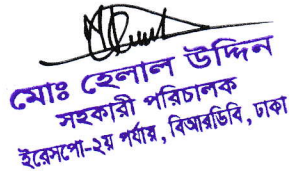 মোঃ হেলাল উদ্দিন
সহকারী পরিচালক
ইরেসপো-২য় পর্যায়, বিআরডিবি, ঢাকা